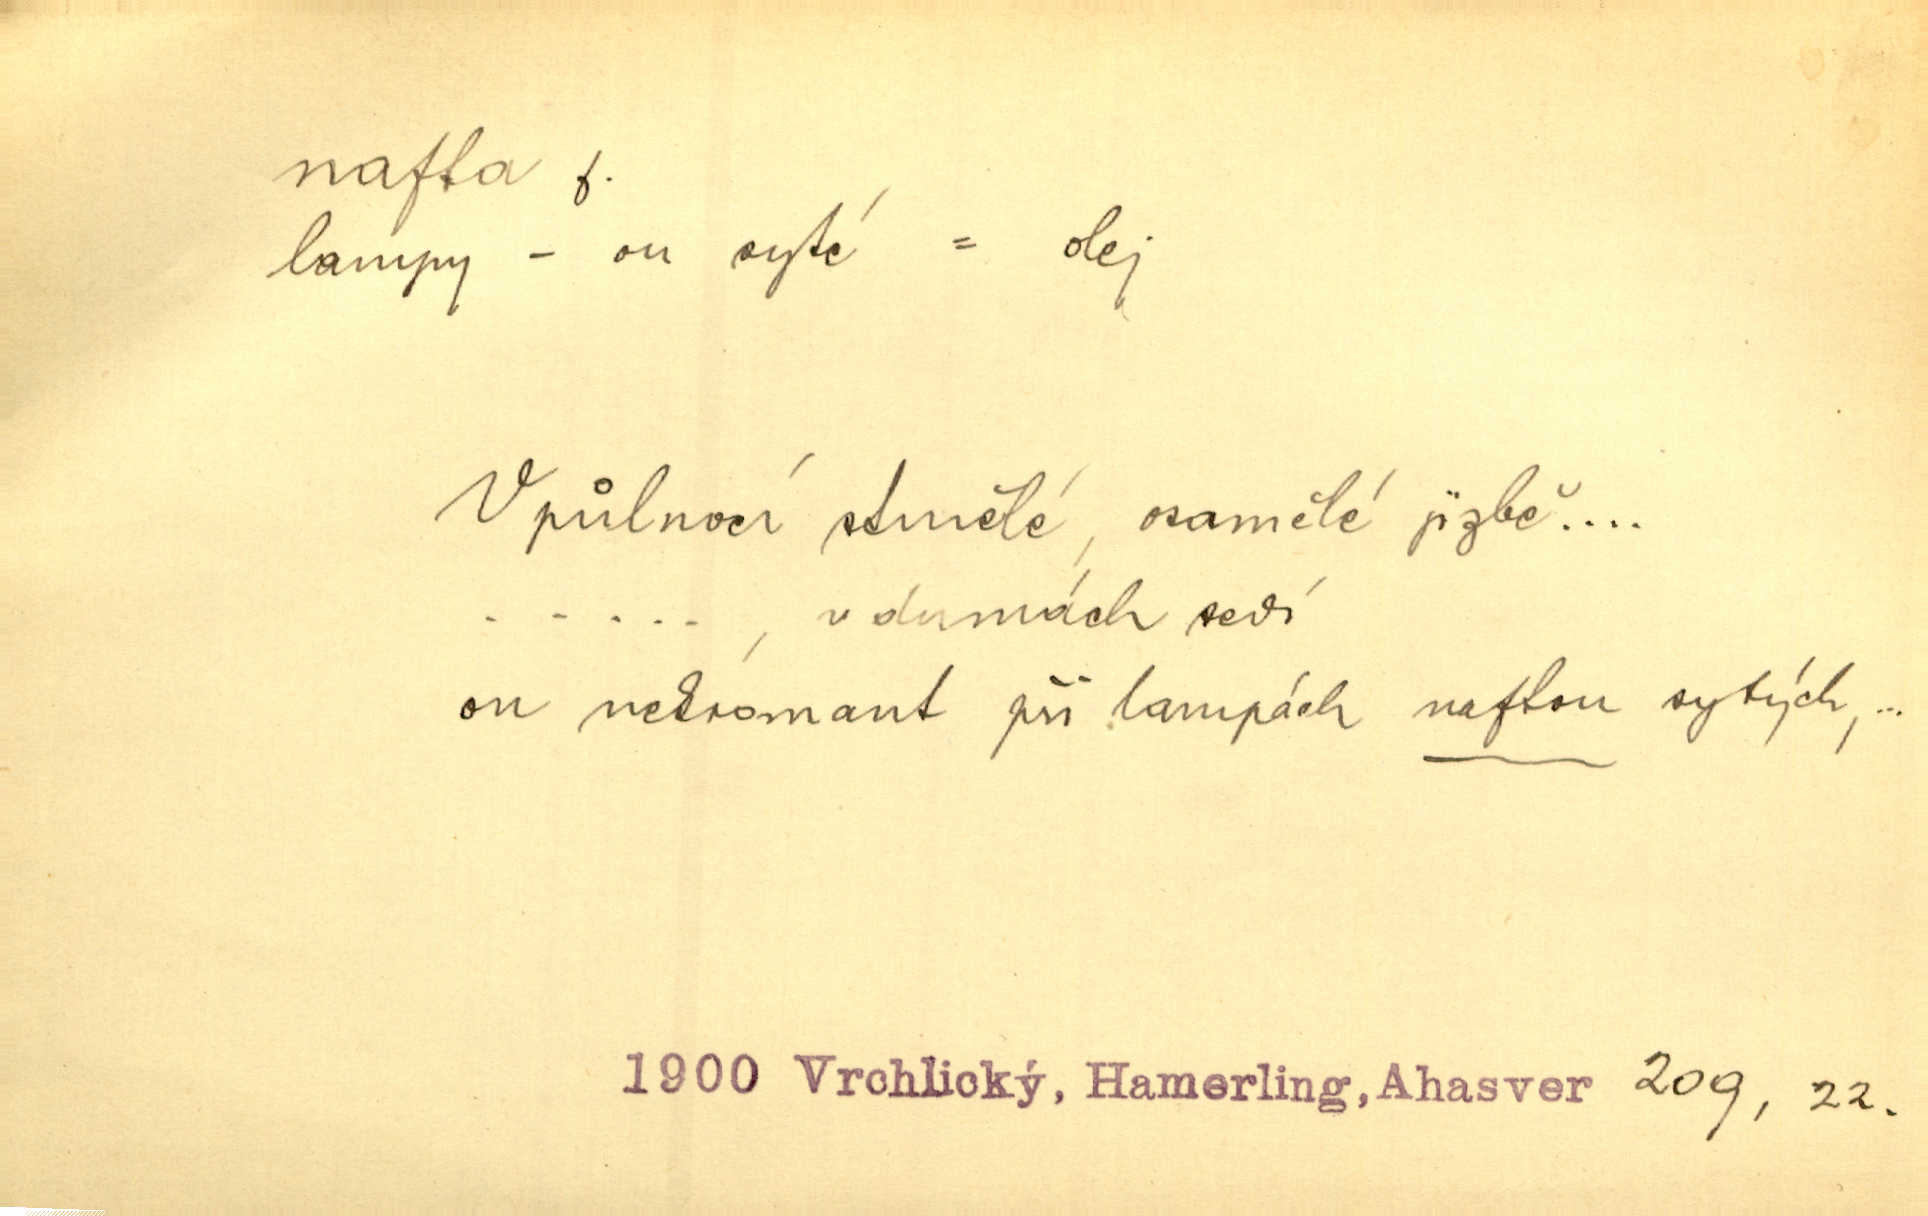 nafta f.
lampy – ou syté = olej
V půlnocí stmělé, osamělé jizbě....
. - . . . , v dumách sedí
on nekromant při lampách naftou sytých,...
1900 Vrchlický, Hamerling, Ahasver 209, 22.